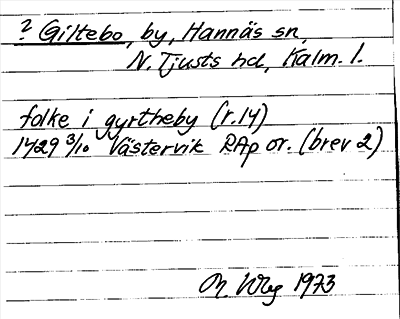 ? Giltebo, by, Hannäs sn,
N. Tjusts hd, Kalm. l.
folke i gyrtheby (r.14)
1429 3/10 Västervik RAp or. (brev 2)
1973